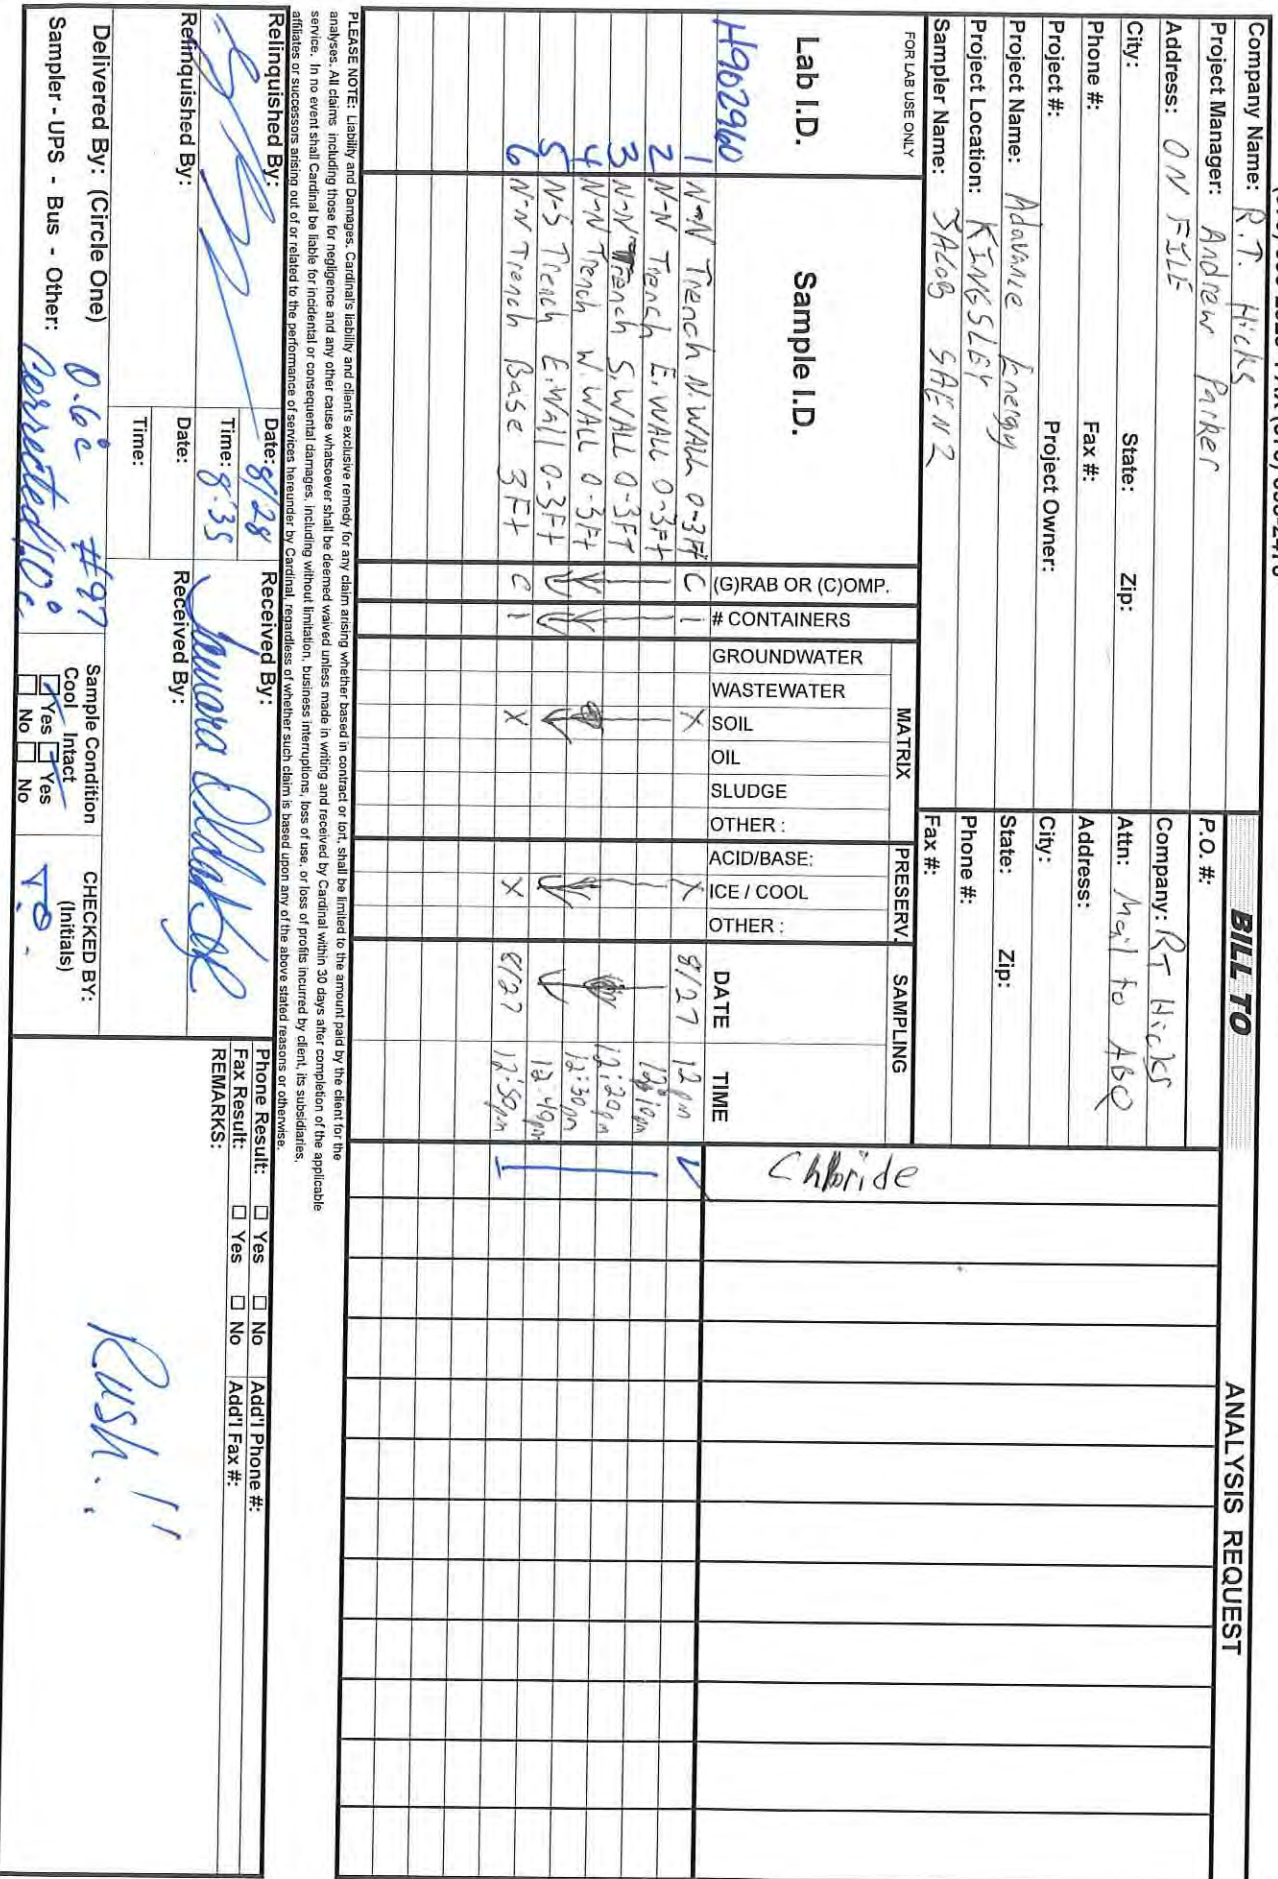 Company Name: R.T. Hicks
Project Manager: Andrew Parker
Address: ON FILE
City: State: Zip:
Phone #: Fax #:
Project #: Project Owner:
Project Name: Adavance Energy
Project Location: KINGSLEY
Sampler Name: JALOB SAENZ
FOR LAB USE ONLY
BILL TO
P.O. #:
Company: RT Hicks
Attn: Mail to ABQ
Address:
City:
State: Zip:
Phone #:
Fax #:
ANALYSIS REQUEST
Chloride
Lab I.D.
Sample I.D.
(G)RAB OR (C)OMP.
# CONTAINERS
MATRIX
GROUNDWATER
WASTEWATER
SOIL
OIL
SLUDGE
OTHER :
PRESERV.
ACID/BASE:
ICE / COOL
OTHER :
SAMPLING
DATE
TIME
H902960
1 N-N Trench N.WALL 0-3Ft C 1 X X 8/27 12pm
2 N-N Trench E.WALL 0-3Ft 12:10pm
3 N-N Trench S.WALL 0-3FT 12:20pm
4 N-N Trench W.WALL 0-3Ft 12:30pm
5 N-S Trench E.Wall 0-3Ft 12:40pm
6 N-N Trench Base 3Ft C 1 X X 8/27 12:50pm
PLEASE NOTE: Liability and Damages. Cardinal's liability and client's exclusive remedy for any claim arising whether based in contract or tort, shall be limited to the amount paid by the client for the
analyses. All claims including those for negligence and any other cause whatsoever shall be deemed waived unless made in writing and received by Cardinal within 30 days after completion of the applicable
service. In no event shall Cardinal be liable for incidental or consequental damages, including without limitation, business interruptions, loss of use, or loss of profits incurred by client, its subsidiaries,
affiliates or successors arising out of or related to the performance of services hereunder by Cardinal, regardless of whether such claim is based upon any of the above stated reasons or otherwise.
Relinquished By:
Date: 8/28
Time: 8:35
Received By:
Tamara
Relinquished By:
Date:
Time:
Received By:
Phone Result: □ Yes □ No Add'l Phone #:
Fax Result: □ Yes □ No Add'l Fax #:
REMARKS:
Rush!!
Delivered By: (Circle One)
Sampler - UPS - Bus - Other:
0.6°c #97
Corrected 1.0°c
Sample Condition
Cool Intact
Yes Yes
No No
CHECKED BY:
(Initials)
T.O.